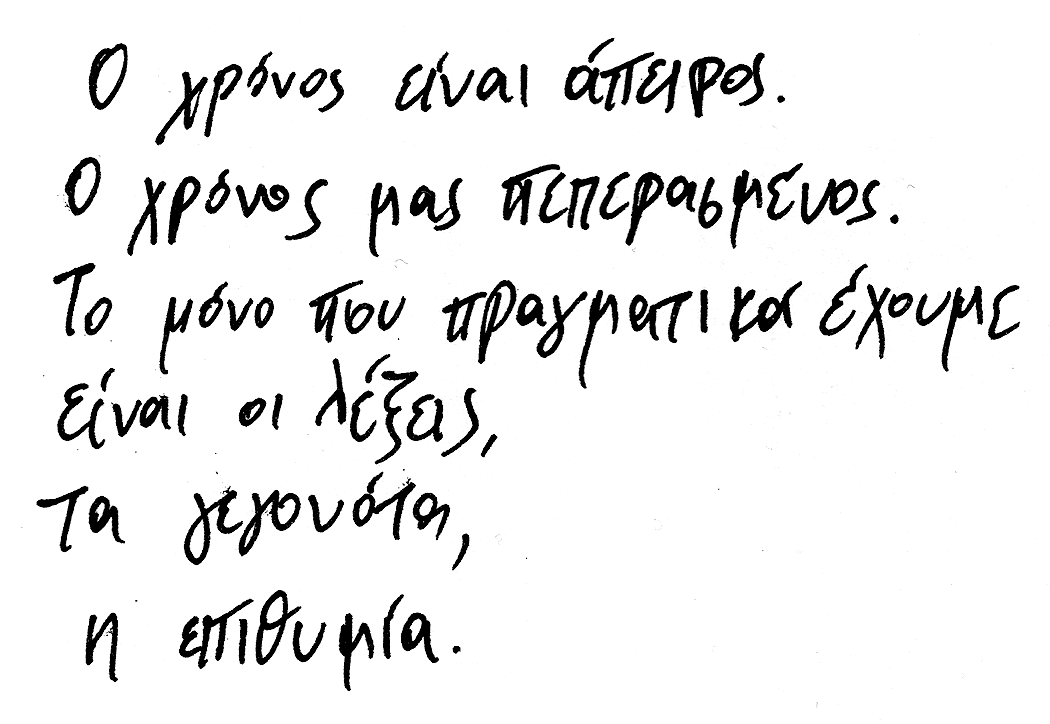 Ο χρόνος είναι άπειρος.
Ο χρόνος μας πεπερασμένος.
Το μόνο που πραγματικά έχουμε
είναι οι λέξεις,
τα γεγονότα,
η επιθυμία.